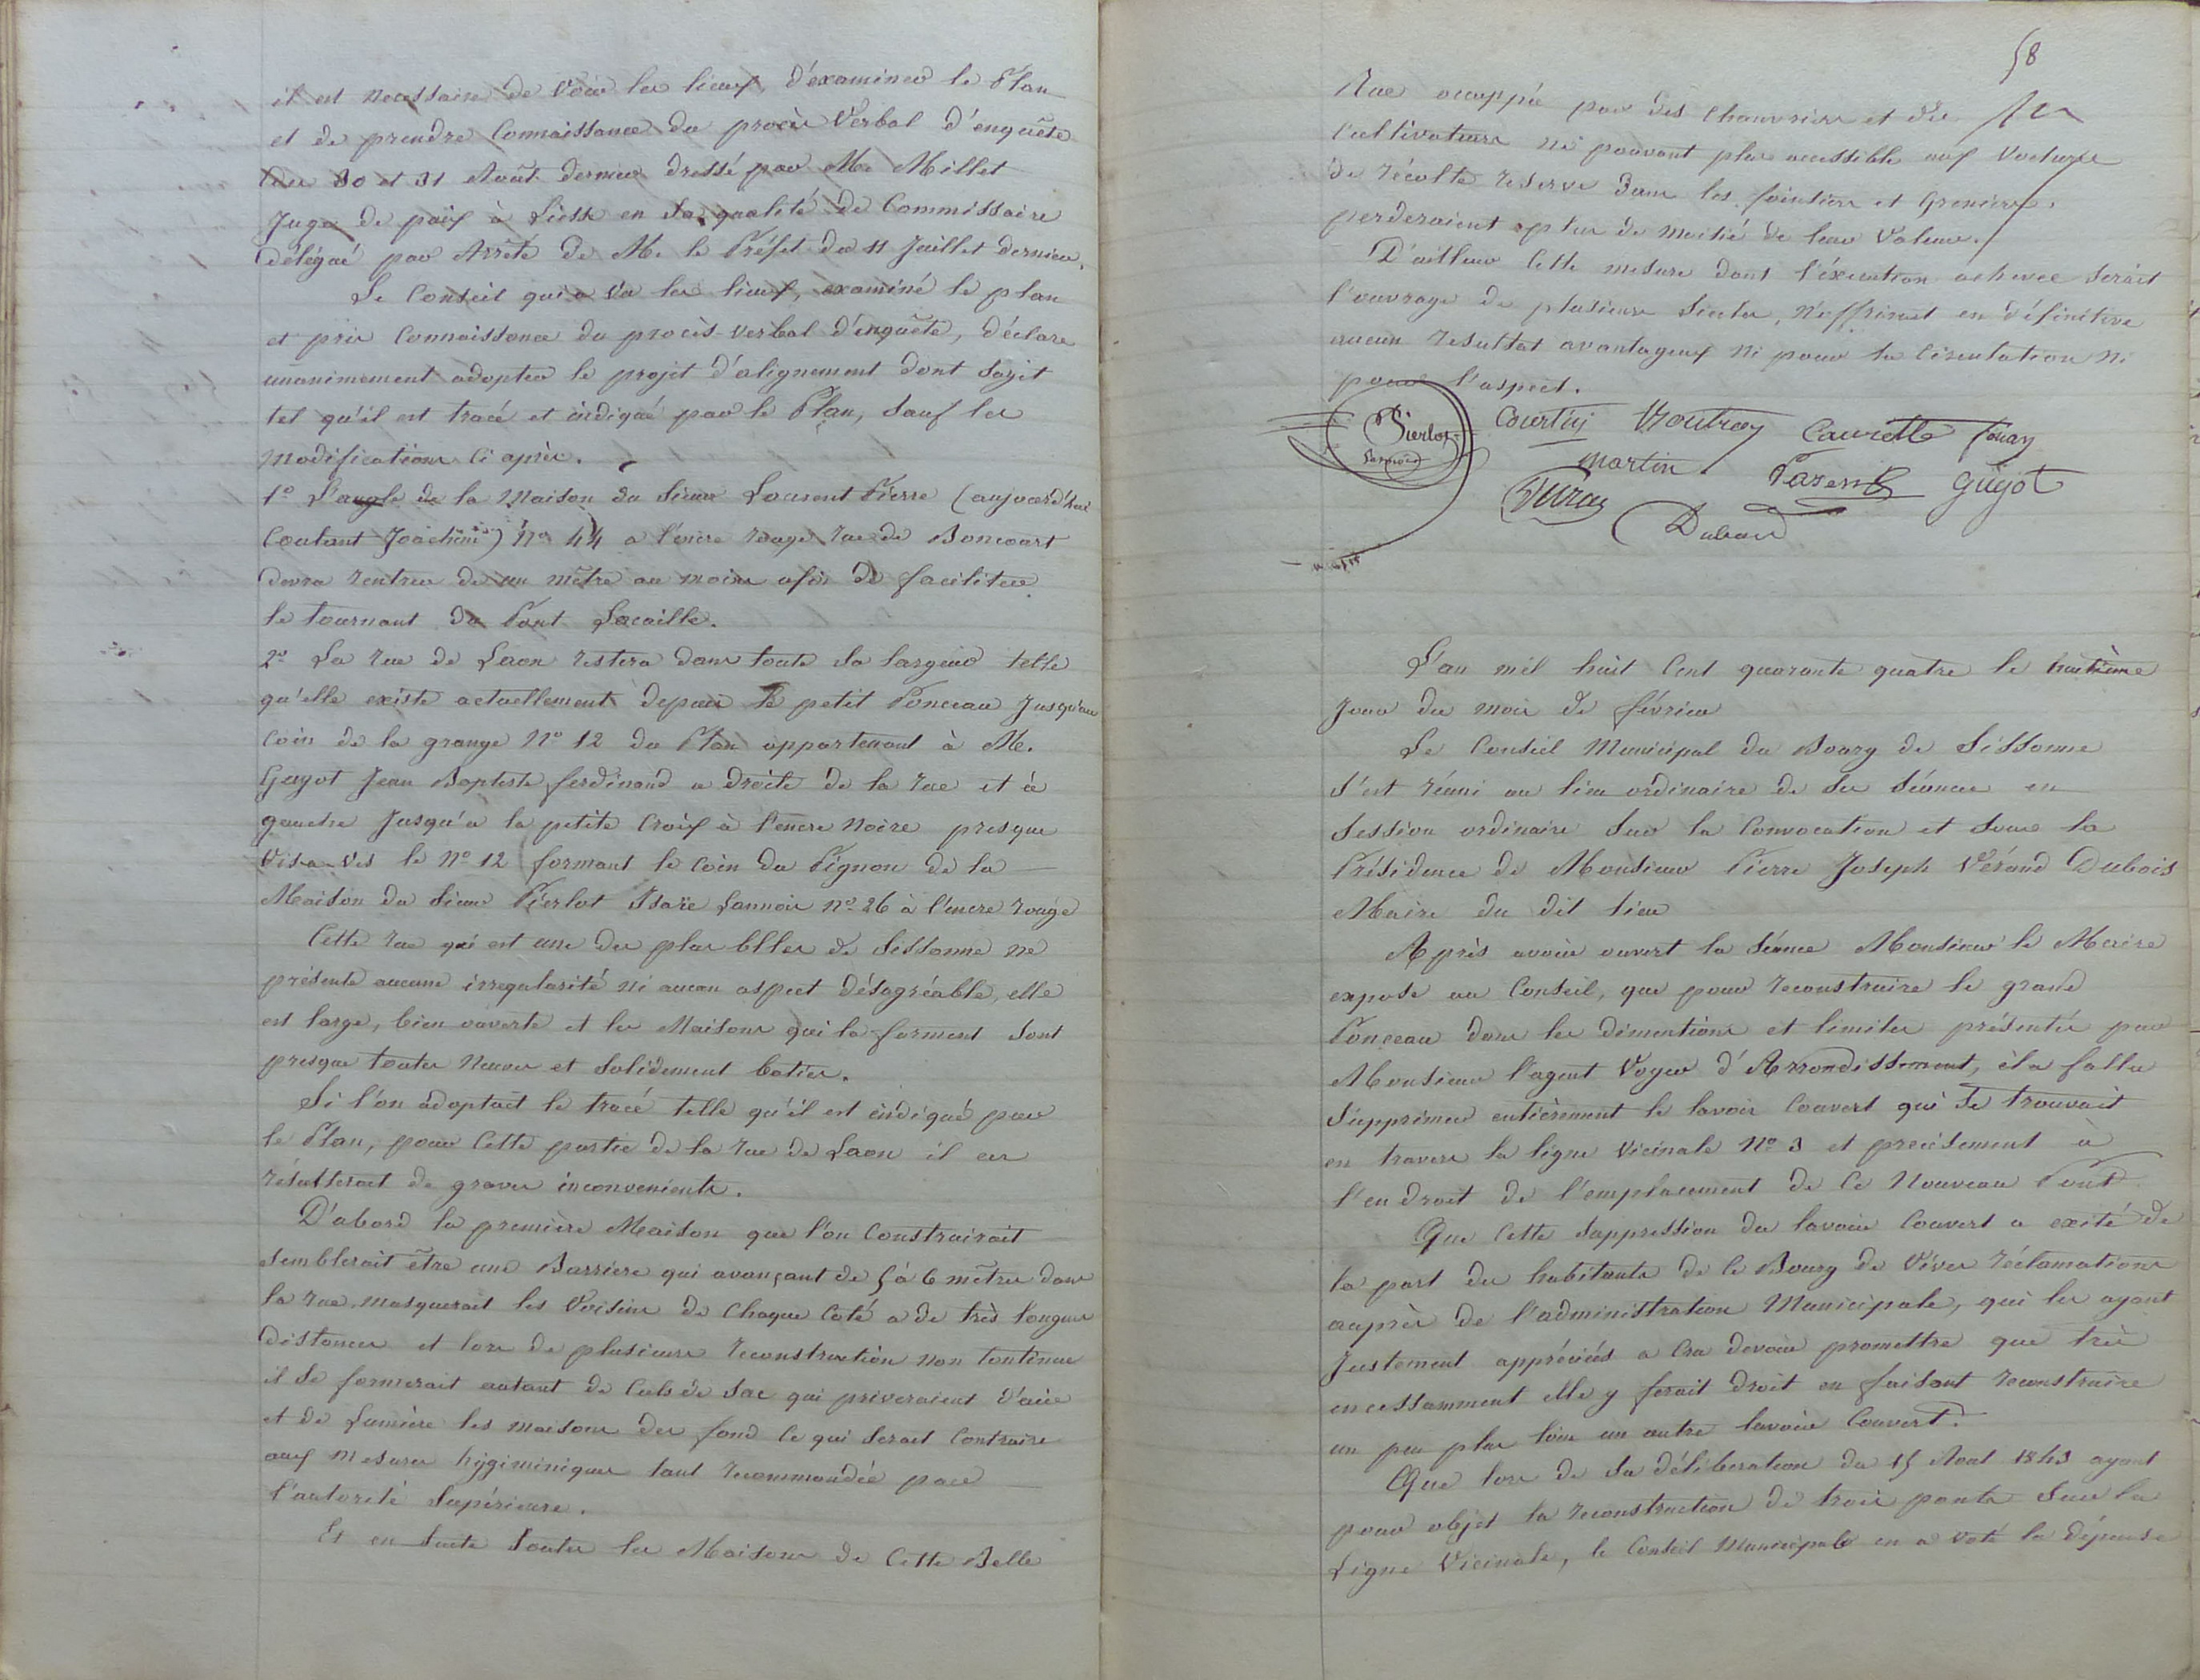 il est necessaire de Voir les lieux, d'examiner le Plan
et de prendre Connaissance du procès Verbal d'enquête
des 30 et 31 Août dernier dressé par M. Millet
Juge de paix à Liesse en Sa qualité de Commissaire
délégué par Arrêté de M. le Préfet du 11 Juillet dernier.
Le Conseil qui a Vu les lieux, examiné le plan
et pris Connaissance du procès-verbal d'enquête, déclare
unanimement adopter le projet d'alignement dont Sagit
tel qu'il est tracé et indiqué par le Plan, Sauf les
Modifications Ci après.
1º L'angle de la Maison du Sieur Laurent Pierre (aujourd'hui
Coutant Joachim) Nº 44 a l'encre rouge rue de Boncourt
devra rentrer de un mètre au moins afin de faciliter
le tournant du Pont Lacaille.
2º La rue de Laon restera dans toute Sa largeur telle
qu'elle existe actuellement depuis le petit Ponceau Jusqu'au
Coin de la grange Nº 12 du Plan appartenant à M.
Guyot Jean Baptiste ferdinand a droite de la rue et à
gauche Jusqu'a la petite Croix à l'encre Noire presque
Vis-a-Vis le Nº 12 formant le Coin du Pignon de la
Maison du Sieur Pierlot Isaïe Lannois Nº 26 à l'encre rouge
Cette rue qui est une des plus blles de Sissonne ne
présente aucune irregularité ni aucun aspect désagréable, elle
est large, bien ouverte et les Maisons qui la forment Sont
presque toutes Neuves et Solidement baties.
Si l'on adoptait le tracé telle qu'il est indiqué par
le Plan, pour Cette partie de la rue de Laon il en
résulterait de graves inconvenients.
D'abord la première Maison que l'on Construirait
Semblerait être une Barriere qui avançant de 5 à 6 mètres dans
la rue, masquerait les Voisins de Chaque Coté a de très longues
distances et lors de plusieurs reconstruction non Continue
il Se formerait autant de Culs de Sac qui priveraient d'air
et de Lumière les maisons des fond Ce qui Serait Contraire
aux Mesures hygiminiques tant recommandée par
l'autorité Supérieure.
Et en Suite Toutes les Maisons de Cette Belle
58
Rue occuppée par des Chanvriers et des
Cultivateurs ne pouvant plus accessible aux Voitures
de récolte reserve dans les fointiers et Greniers.
perderaient plus de moitié de leur Valeur.
D'ailleur Cette mesure dont l'éxecution achevee Serait
l'ouvrage de plusieurs Siecles, N'offrirait en définitive
aucun resultat avantageux Ni pour la Circulation Ni
pour l'aspect.
Pierlot Courtin Voutroy Caurette
Lannois Martin Guyot
Dubois
L'an mil huit Cent quarante quatre le huitième
Jour du mois de février
Le Conseil Municipal du Bourg de Sissonne
S'est réuni au lieu ordinaire de Ses Séances en
Session ordinaire Sur la Convocation et Sous la
Présidence de Monsieur Pierre Joseph Vérand Dubois
Maire du dit lieu
Après avoir ouvert la Séance Monsieur le Maire
expose au Conseil, que pour reconstruire le grand
Ponceau dans les dimentions et limites présentés par
Monsieur l'agent Voyer d'Arrondissement, il a fallu
Supprimer entièrement le lavoir Couvert qui Se trouvait
en travers la ligne Vicinale Nº 3 et precisement à
l'endroit de l'emplacement de Ce Nouveau Pont
Que Cette Suppression du lavoir Couvert a exité de
la part des habitants de Ce Bourg de Vives réclamations
auprès de l'administration Municipale, qui les ayant
Justement appréciés a Cru devoir promettre que très
incessamment elle y ferait droit en faisant reconstruire
un peu plus loin un autre lavoir Couvert.
Que lors de Sa délibération du 15 Aout 1843 ayant
pour objet la reconstruction de trois ponts Sur la
Ligne Vicinale, le Conseil Municipale en a Voté la dépense